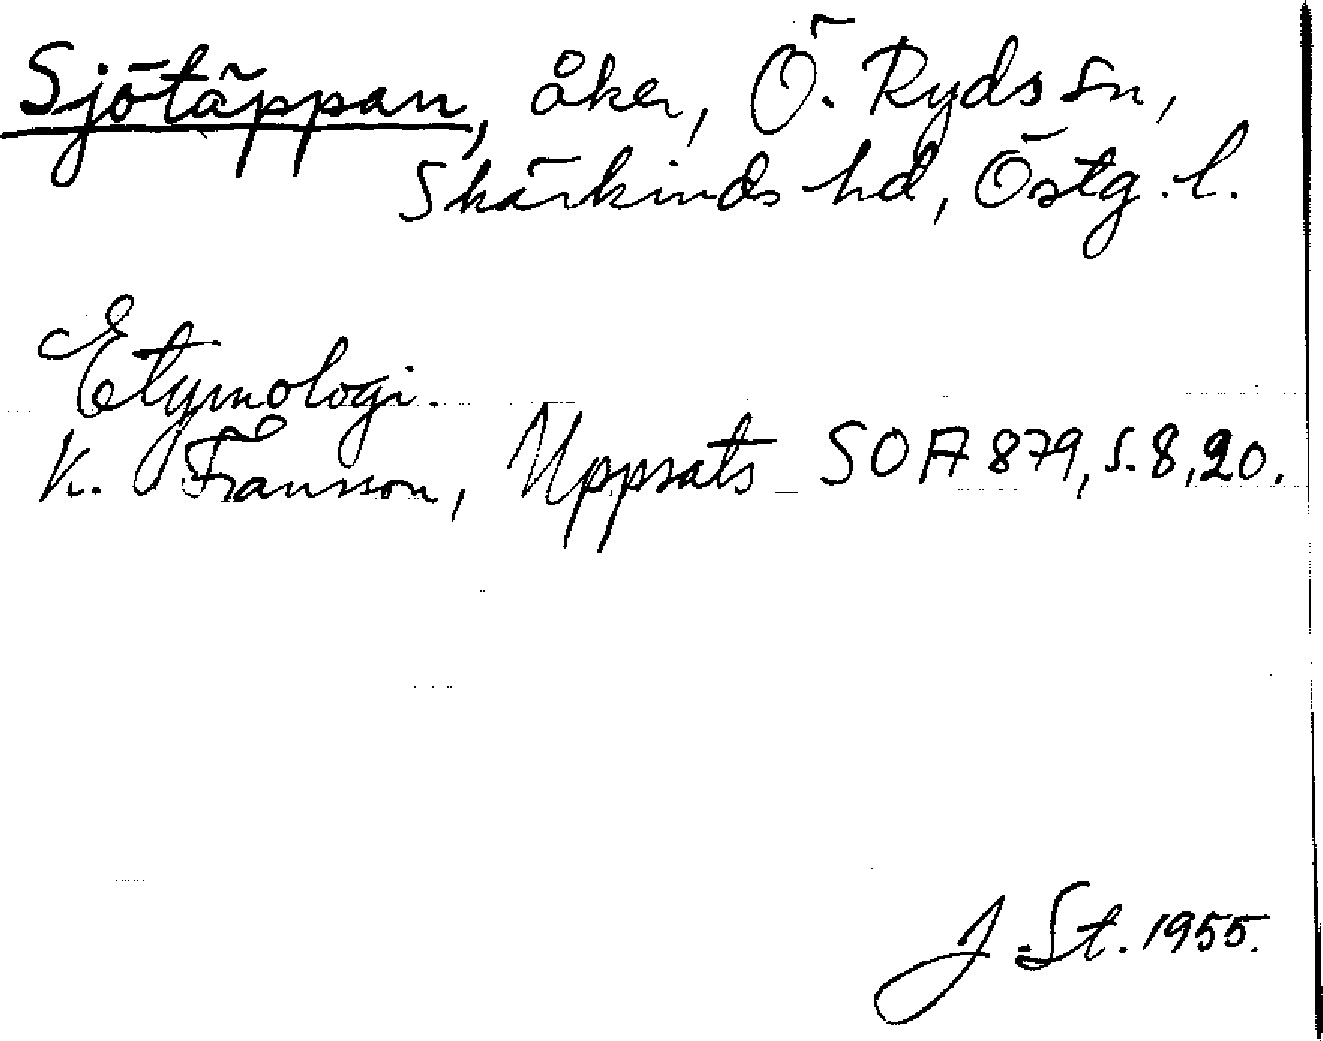 Sjötäppan, åker, Ö. Ryds sn,
Skärkinds hd, Östg. l.
Etymologi.
K. Fransson, Uppsats SOA 879, s. 8, 20.
J. St. 1955.